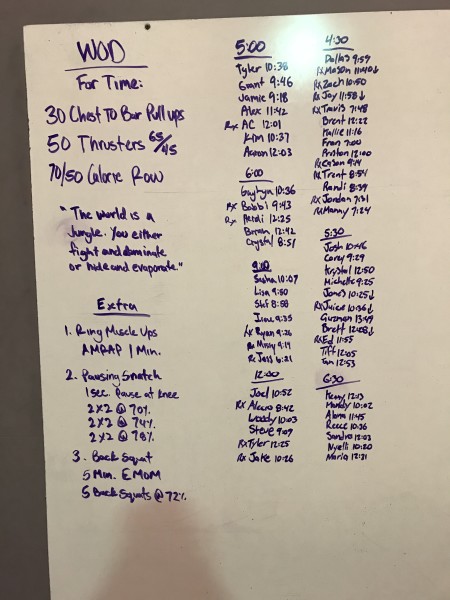 WOD
For Time:
30 Chest To Bar Pull ups
50 Thrusters 65/45
70/50 Calorie Row
"The world is a
Jungle. You either
fight and dominate
or hide and evaporate."
Extra
1. Ring Muscle Ups
AMRAP 1 Min.
2. Pausing Snatch
1 sec. Pause at Knee
2x2 @ 70%
2x2 @ 74%
2x2 @ 78%
3. Back Squat
5 Min. EMOM
5 Back Squats @ 72%
5:00
Tyler 10:38
Grant 9:46
Jamie 9:18
Alex 11:42
Rx AC 12:01
Kim 10:37
Aaron 12:03
6:00
10:36
Rx Bobbi 9:43
Rx Heidi 12:25
Brian 12:42
Crystal 8:51
9:00
Sasha 10:07
Lisa 9:50
Stef 8:58
9:35
Rx Ryan 9:26
Rx Missy 9:14
Rx Jass 6:21
12:00
Joel 10:52
Rx 8:42
Woody 10:03
Steve 9:09
Rx Tyler 12:25
Rx Jake 10:26
4:30
Dallas 9:59
Rx Mason 11:40↓
Rx Zach 10:50
Rx Jay 11:58↓
Rx Travis 7:48
Brent 12:22
Hallie 11:16
Fran 7:00
12:00
Rx 9:14
Rx Trent 8:54
Randi 8:39
Rx Jordan 7:31
Rx Manny 7:24
5:30
Josh 10:46
Corey 9:29
Krystal 12:50
Michelle 9:25
Jones 10:25↓
Rx Juice 10:36↓
Guzman 13:49
Brett 12:08↓
Rx Ed 11:55
Tiff 12:05
Ian 12:53
6:30
Kenny 12:13
Mandy 10:02
Alana 11:45
Reece 10:36
Sandra 12:03
Nyelli 10:20
Maria 12:21